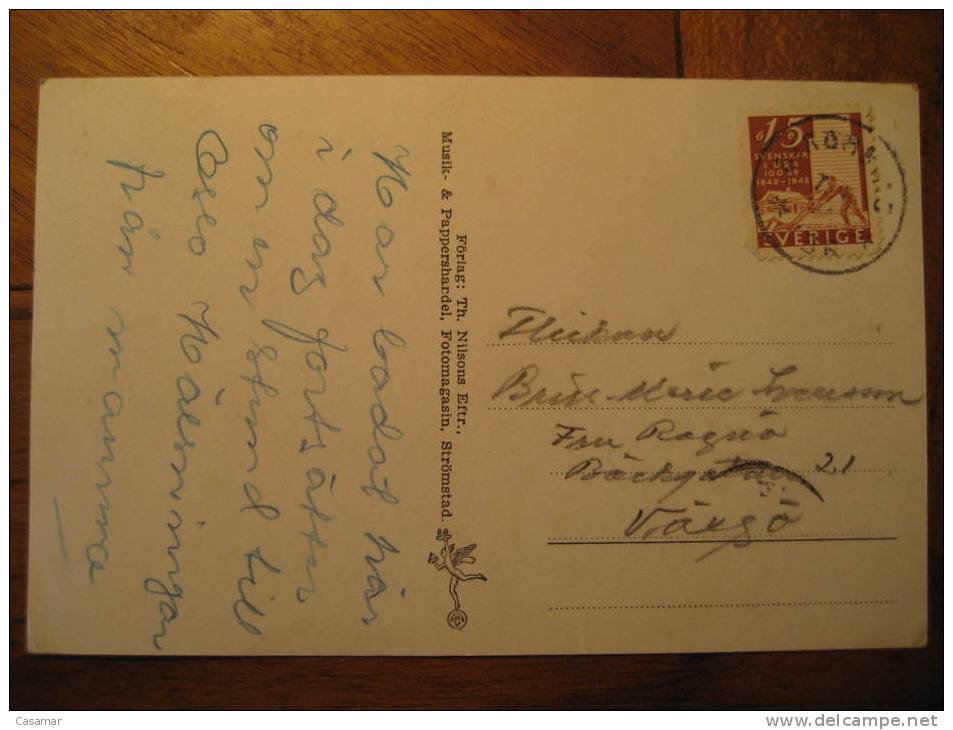 Har badat här
i dag fortsätter
om en stund till
Oslo Hälsningar
från mamma
Förlag: Th. Nilsons Eftr.,
Musik- & Pappershandel, Fotomagasin, Strömstad.
ö 15
SVENSKAR
I USA
100 ÅR
1848-1948
SVERIGE
Britt-Marie Svensson
Fru Ragnö
Bäckgatan 21
Växjö
Casamar
www.delcampe.net